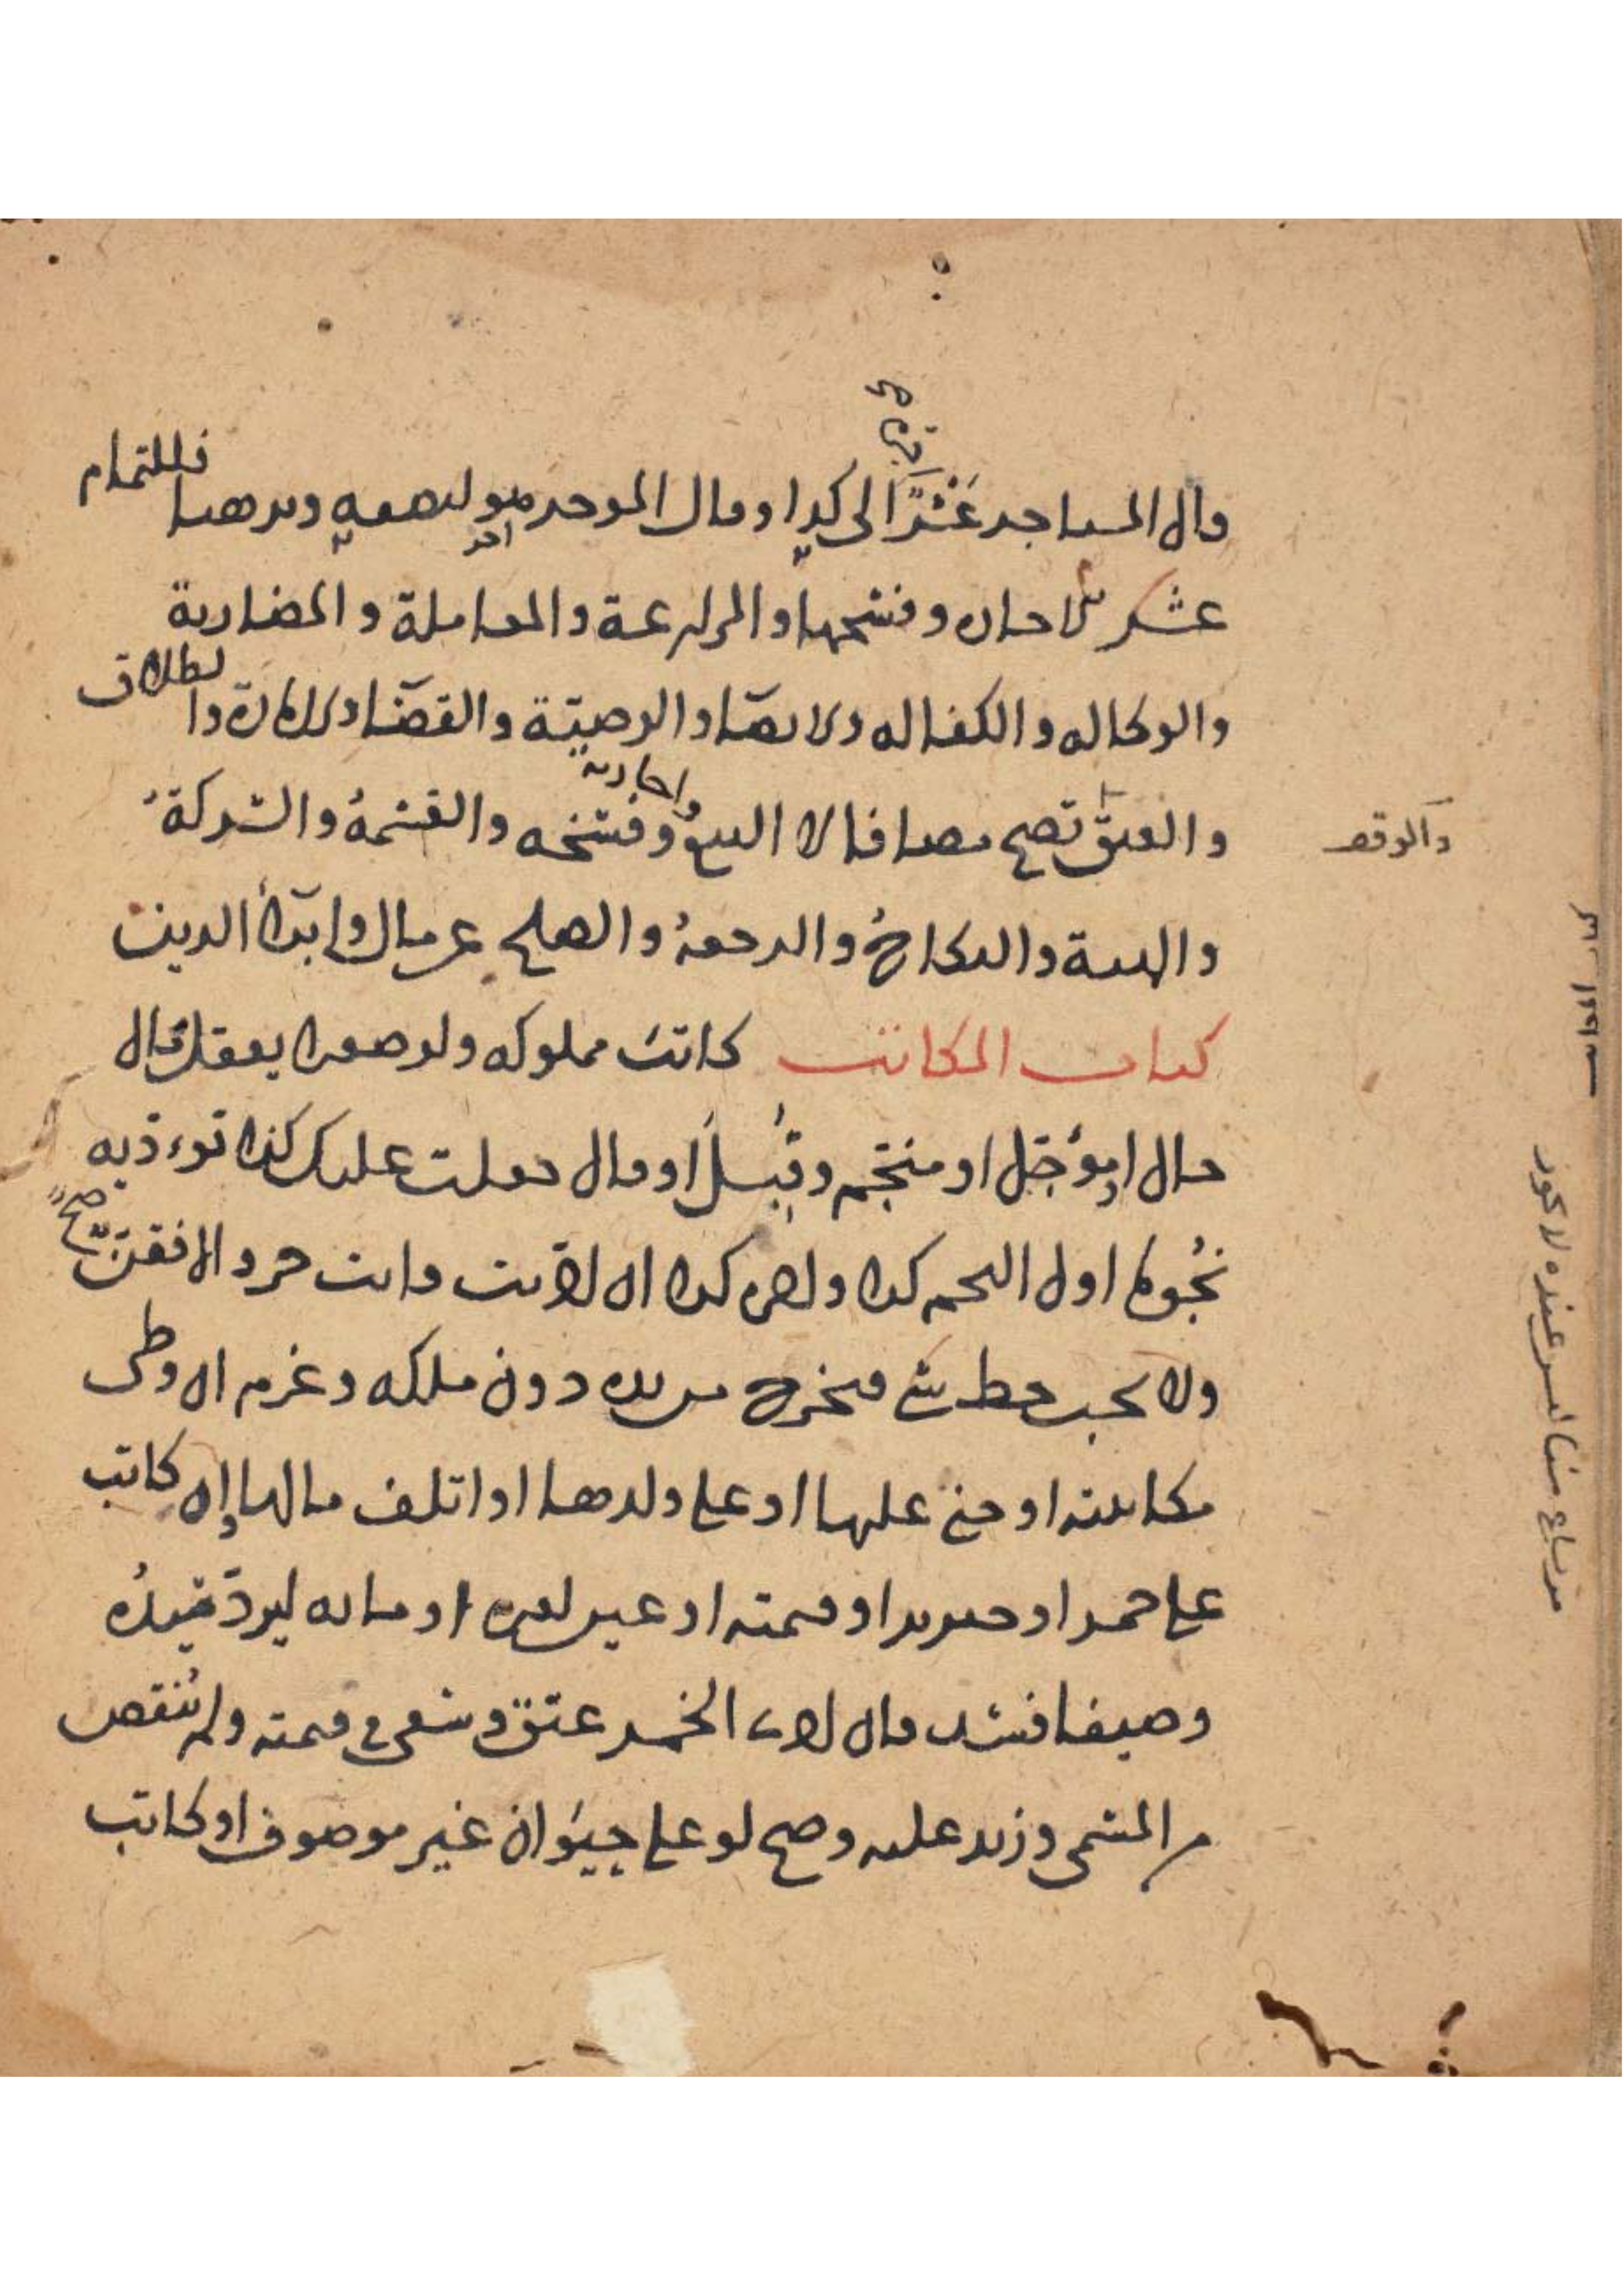 قال المستاجر عشرًا الى كذا وقال الموجر مو لنصفيه وبرهنا فللتمام
عشر الاجاره وفسخها والمزارعة والمعاملة والمضاربة
والوكاله والكفاله والايصاء والوصيّة والقضاء والامارة والطلاق
والعتق تصح مضافا لا البيع واجازته وفسخه والقسمة والشركة
والوقف
والهبة والنكاح والرجعة والصلح عن مال وابراء الدين
كتاب المكاتب كاتب مملوكه ولو صغيرا يعقل بمال
حال او مؤجل او منجم وقبل او قال جعلت عليك كذا تؤديه
نجوما اول النجم كذا واخره كذا ان اديت فانت حر والا فقن صح
ولا يجب حط شي فيخرج من يده دون ملكه وغرم ان وطى
مكاتبته او جنى عليها او على ولدها او اتلف مالها وان كاتب
على خمر او خنزير او قيمته او عين لغيره او مائه ليرد سيده
وصيفا فسد فان ادى الخمر عتق وسعى في قيمته ولم تنقص
من المسمى وزيد عليه وصح لو على حيوان غير موصوف او كاتب